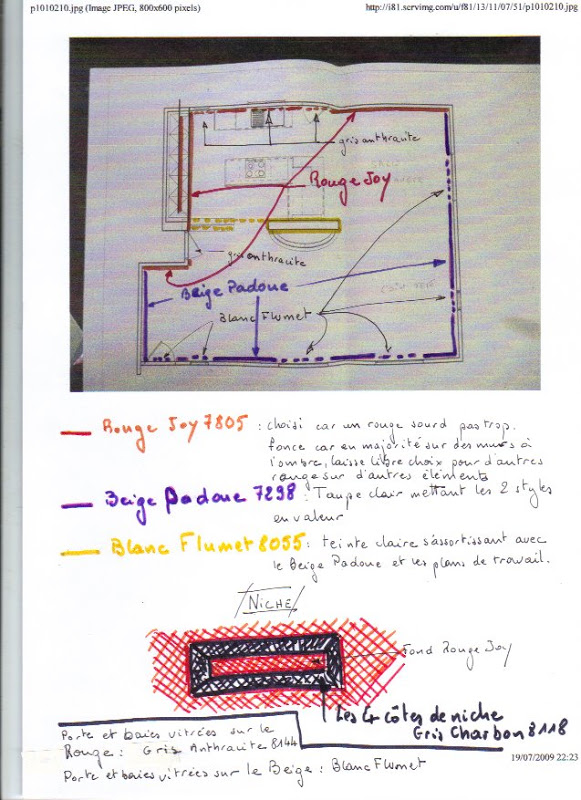 p1010210.jpg (Image JPEG, 800x600 pixels)
http://i81.servimg.com/u/f81/13/11/07/51/p1010210.jpg
gris anthracite
Rouge Joy
gris anthracite
Beige Padoue
Blanc Flumet
Rouge Joy 7805 : choisi car un rouge sourd pas trop
fonce car en majorité sur des murs à
l'ombre, laisse libre choix pour d'autres
rouge sur d'autres éléments
Beige Padoue 7298 : Taupe clair mettant les 2 styles
en valeur
Blanc Flumet 8055 : teinte claire s'assortissant avec
le Beige Padoue et les plans de travail.
NICHE
Fond Rouge Joy
Les 4 côtés de niche
Gris Charbon 8118
Porte et baies vitrées sur le
Rouge : Gris Anthracite 8144
19/07/2009 22:23
Porte et baies vitrées sur le Beige : Blanc Flumet